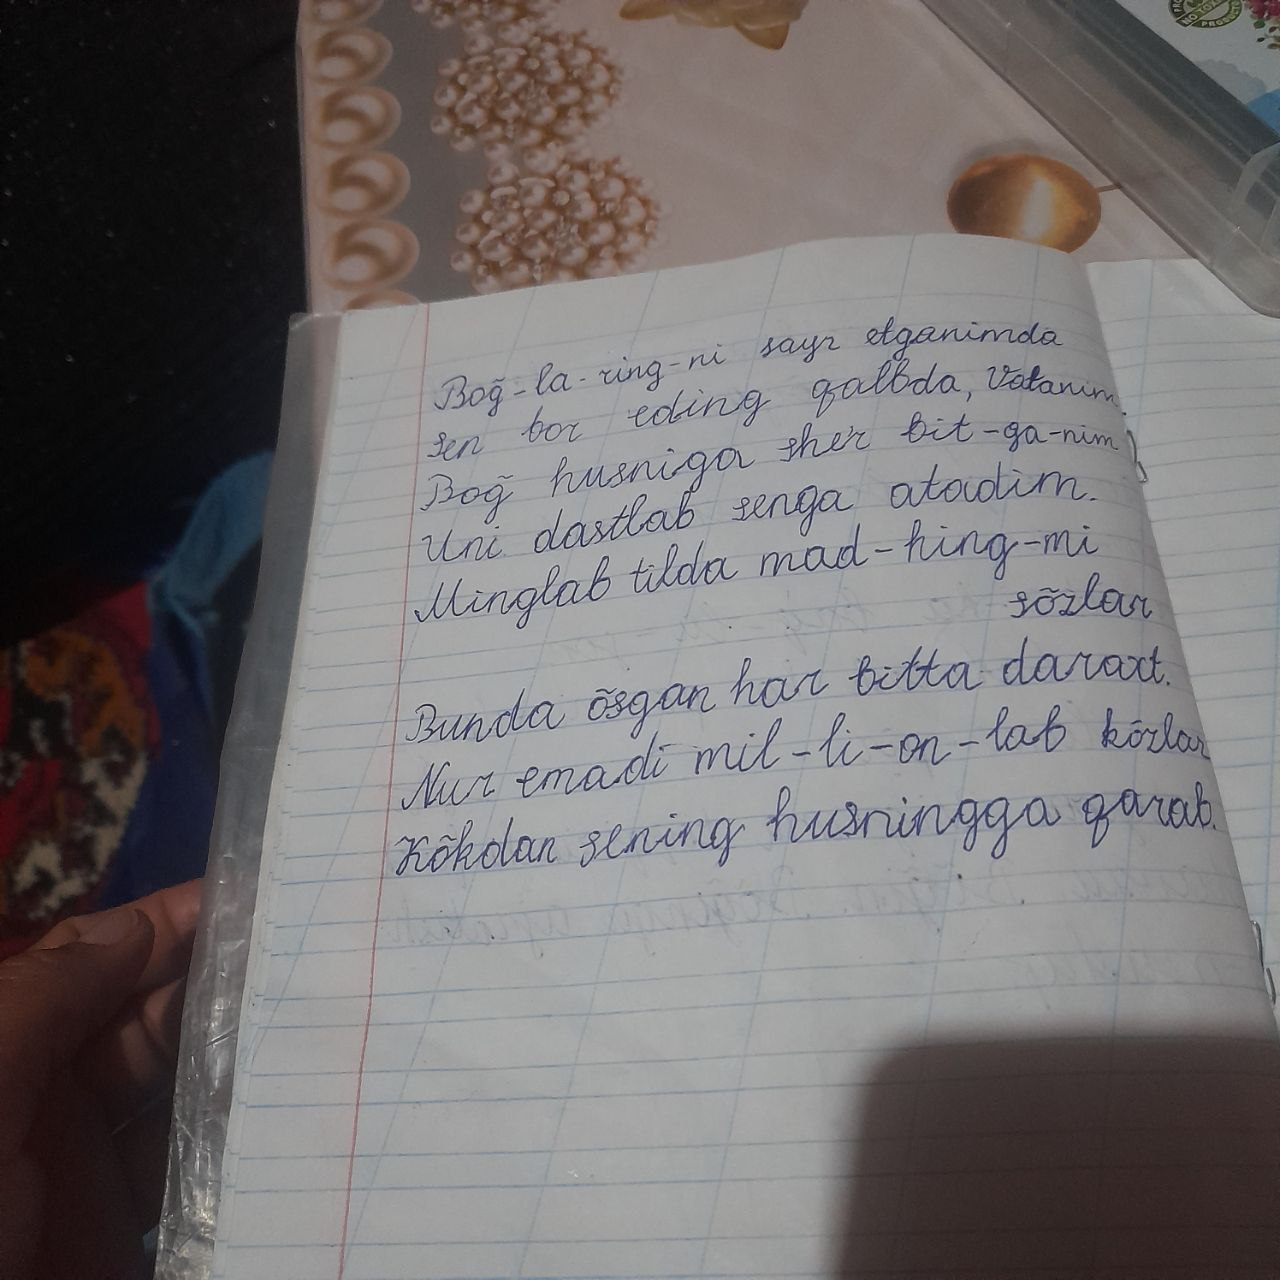 Boğ-la-ring-ni sayr etganimda
sen bor eding qalbda, Vatanim.
Boğ husniga sher bit-ga-nim
Uni dastlab senga atadim.
Minglab tilda mad-hing-mi
sõzlar
Bunda õsgan har bitta daraxt.
Nur emadi mil-li-on-lab kõzlar
Kõkdan sening husningga qarab.